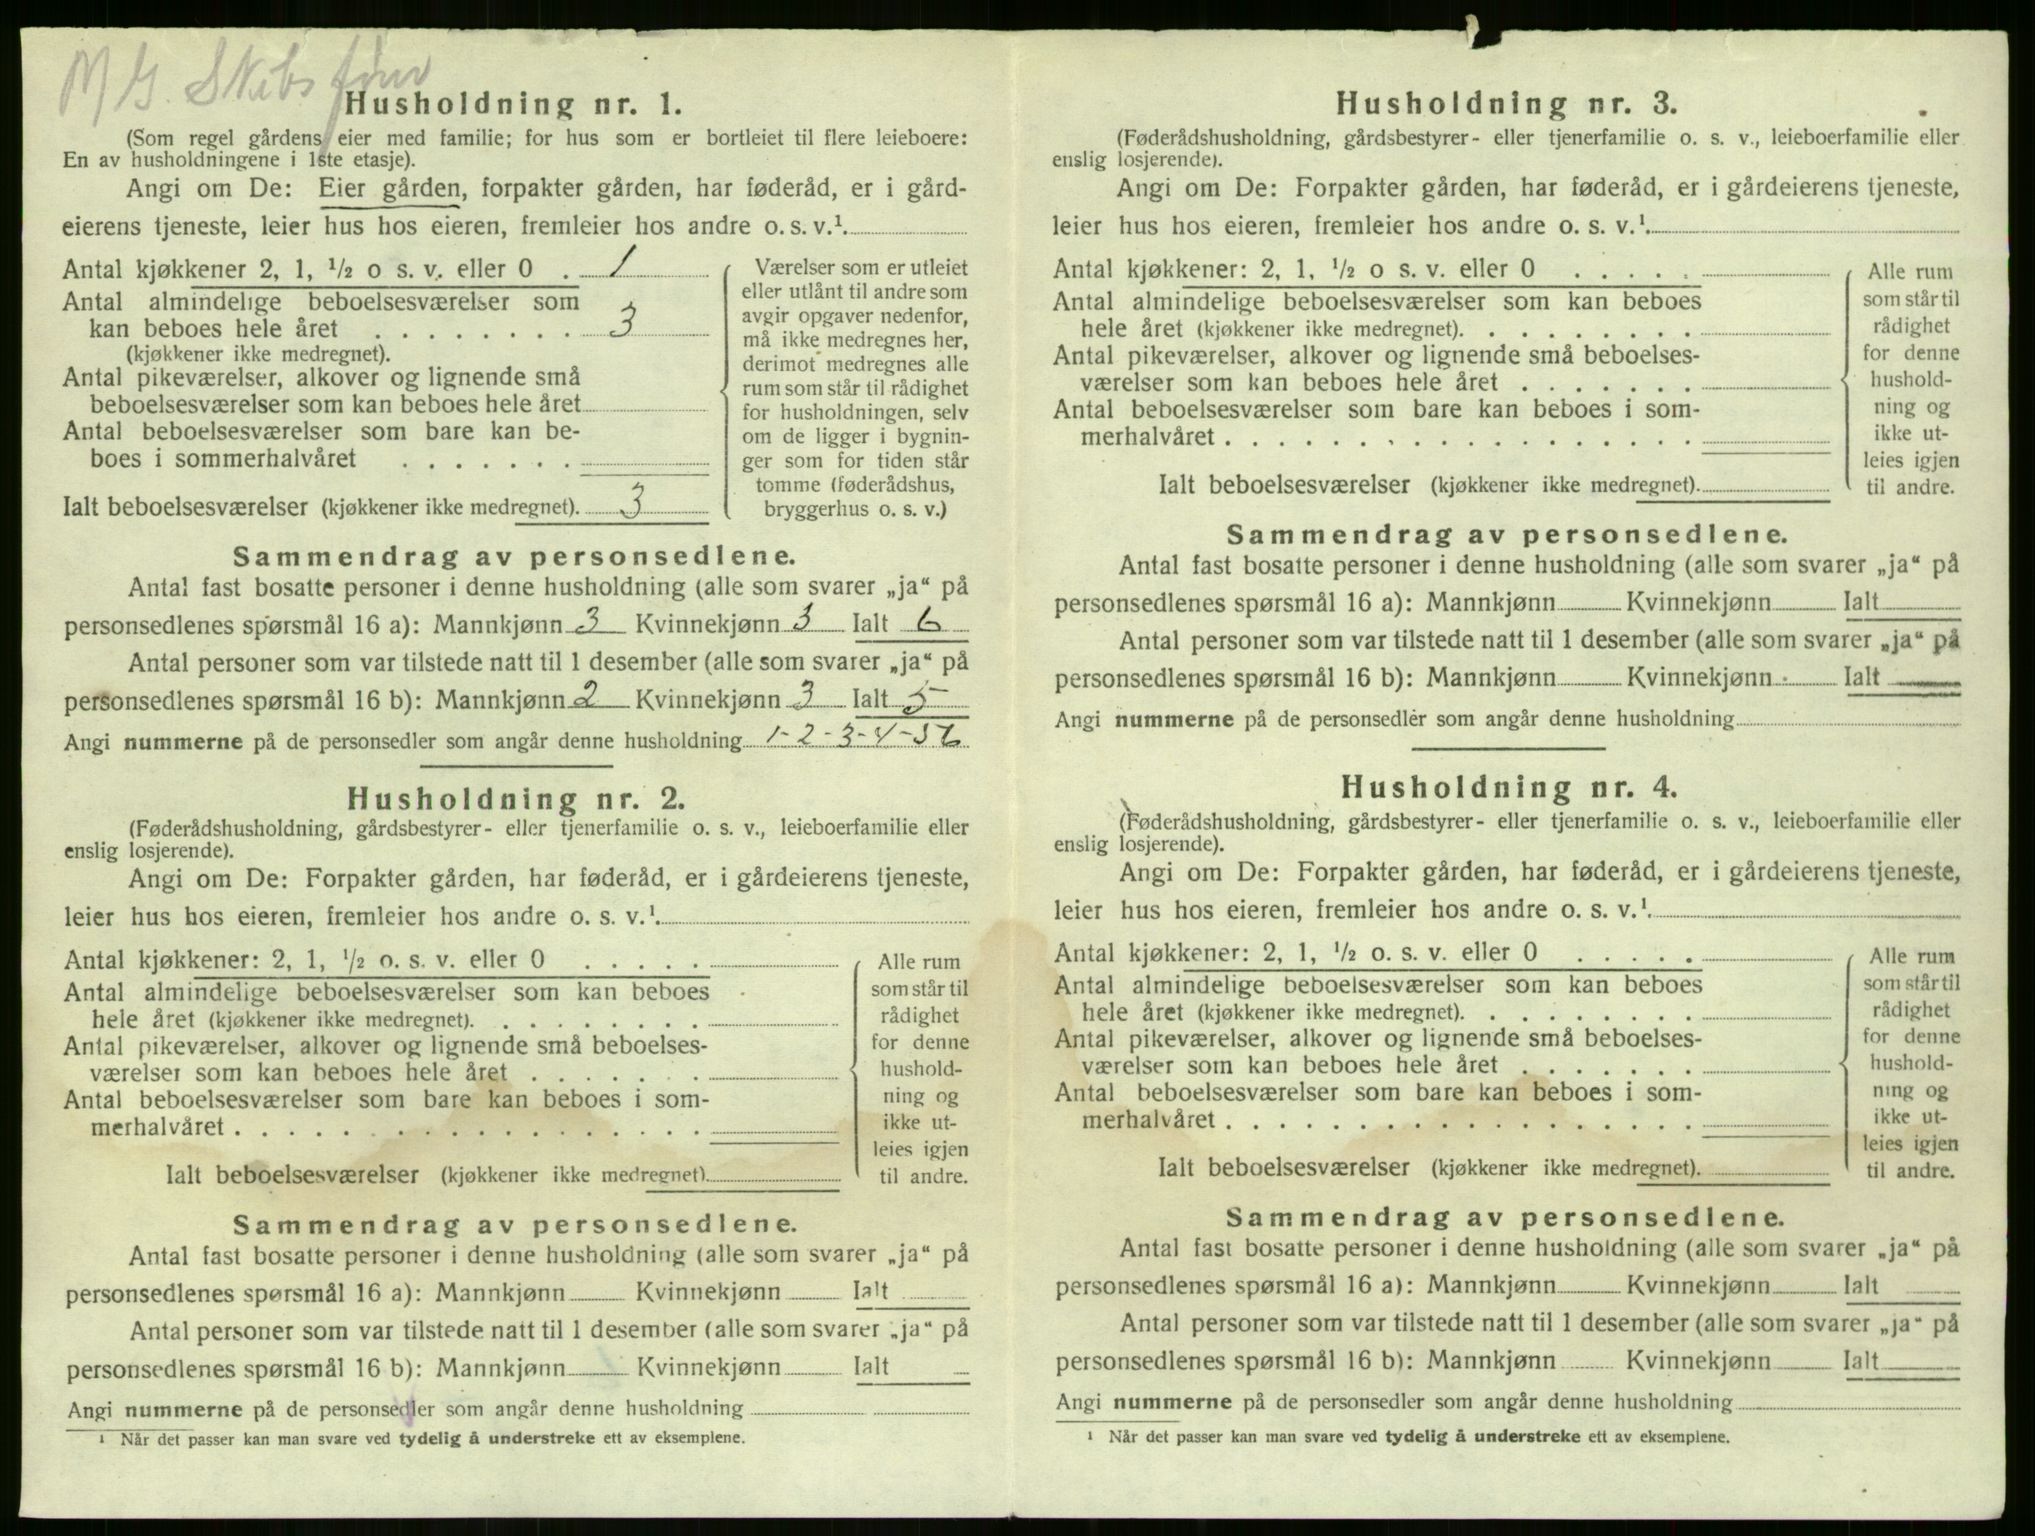 M G. Skibsfør
Husholdning nr. 1.
(Som regel gårdens eier med familie; for hus som er bortleiet til flere leieboere:
En av husholdningene i 1ste etasje).
Angi om De: Eier gården, forpakter gården, har føderåd, er i gård-
eierens tjeneste, leier hus hos eieren, fremleier hos andre o. s. v.¹.
Antal kjøkkener 2, 1, ½ o s. v. eller 0 . 1
Antal almindelige beboelsesværelser som
kan beboes hele året . . . . . . . . 3
(kjøkkener ikke medregnet).
Antal pikeværelser, alkover og lignende små
beboelsesværelser som kan beboes hele året
Antal beboelsesværelser som bare kan be-
boes i sommerhalvåret . . . . . . .
Ialt beboelsesværelser (kjøkkener ikke medregnet). 3
Værelser som er utleiet
eller utlånt til andre som
avgir opgaver nedenfor,
må ikke medregnes her,
derimot medregnes alle
rum som står til rådighet
for husholdningen, selv
om de ligger i bygnin-
ger som for tiden står
tomme (føderådshus,
bryggerhus o. s. v.)
Sammendrag av personsedlene.
Antal fast bosatte personer i denne husholdning (alle som svarer „ja“ på
personsedlenes spørsmål 16 a): Mannkjønn 3 Kvinnekjønn 3 Ialt 6
Antal personer som var tilstede natt til 1 desember (alle som svarer „ja“ på
personsedlenes spørsmål 16 b): Mannkjønn 2 Kvinnekjønn 3 Ialt 5
Angi nummerne på de personsedler som angår denne husholdning 1-2-3-4-56
Husholdning nr. 2.
(Føderådshusholdning, gårdsbestyrer- eller tjenerfamilie o. s. v., leieboerfamilie eller
enslig losjerende).
Angi om De: Forpakter gården, har føderåd, er i gårdeierens tjeneste,
leier hus hos eieren, fremleier hos andre o. s. v.¹.
Antal kjøkkener: 2, 1, ½ o. s. v. eller 0 . . . . .
Antal almindelige beboelsesværelser som kan beboes
hele året (kjøkkener ikke medregnet). . . . . . . . .
Antal pikeværelser, alkover og lignende små beboelses-
værelser som kan beboes hele året . . . . . . .
Antal beboelsesværelser som bare kan beboes i som-
merhalvåret . . . . . . . . . . . . . . . . . .
Ialt beboelsesværelser (kjøkkener ikke medregnet).
Alle rum
som står til
rådighet
for denne
hushold-
ning og
ikke ut-
leies igjen
til andre.
Sammendrag av personsedlene.
Antal fast bosatte personer i denne husholdning (alle som svarer „ja“ på
personsedlenes spørsmål 16 a): Mannkjønn Kvinnekjønn Ialt
Antal personer som var tilstede natt til 1 desember (alle som svarer „ja“ på
personsedlenes spørsmål 16 b): Mannkjønn Kvinnekjønn Ialt
Angi nummerne på de personsedler som angår denne husholdning
¹ Når det passer kan man svare ved tydelig å understreke ett av eksemplene.
Husholdning nr. 3.
(Føderådshusholdning, gårdsbestyrer- eller tjenerfamilie o. s. v., leieboerfamilie eller
enslig losjerende).
Angi om De: Forpakter gården, har føderåd, er i gårdeierens tjeneste,
leier hus hos eieren, fremleier hos andre o. s. v.¹.
Antal kjøkkener: 2, 1, ½ o s. v. eller 0 . . . . .
Antal almindelige beboelsesværelser som kan beboes
hele året (kjøkkener ikke medregnet). . . . . . . . .
Antal pikeværelser, alkover og lignende små beboelses-
værelser som kan beboes hele året . . . . . . .
Antal beboelsesværelser som bare kan beboes i som-
merhalvåret . . . . . . . . . . . . . . . . . .
Ialt beboelsesværelser (kjøkkener ikke medregnet).
Alle rum
som står til
rådighet
for denne
hushold-
ning og
ikke ut-
leies igjen
til andre.
Sammendrag av personsedlene.
Antal fast bosatte personer i denne husholdning (alle som svarer „ja“ på
personsedlenes spørsmål 16 a): Mannkjønn Kvinnekjønn Ialt
Antal personer som var tilstede natt til 1 desember (alle som svarer „ja“ på
personsedlenes spørsmål 16 b): Mannkjønn Kvinnekjønn Ialt
Angi nummerne på de personsedler som angår denne husholdning
Husholdning nr. 4.
(Føderådshusholdning, gårdsbestyrer- eller tjenerfamilie o. s. v., leieboerfamilie eller
enslig losjerende).
Angi om De: Forpakter gården, har føderåd, er i gårdeierens tjeneste,
leier hus hos eieren, fremleier hos andre o. s. v.¹.
Antal kjøkkener: 2, 1, ½ o. s. v. eller 0 . . . . .
Antal almindelige beboelsesværelser som kan beboes
hele året (kjøkkener ikke medregnet). . . . . . . . .
Antal pikeværelser, alkover og lignende små beboelses-
værelser som kan beboes hele året . . . . . . .
Antal beboelsesværelser som bare kan beboes i som-
merhalvåret . . . . . . . . . . . . . . . . . .
Ialt beboelsesværelser (kjøkkener ikke medregnet).
Alle rum
som står til
rådighet
for denne
hushold-
ning og
ikke ut-
leies igjen
til andre.
Sammendrag av personsedlene.
Antal fast bosatte personer i denne husholdning (alle som svarer „ja“ på
personsedlenes spørsmål 16 a): Mannkjønn Kvinnekjønn Ialt
Antal personer som var tilstede natt til 1 desember (alle som svarer „ja“ på
personsedlenes spørsmål 16 b): Mannkjønn Kvinnekjønn Ialt
Angi nummerne på de personsedler som angår denne husholdning
¹ Når det passer kan man svare ved tydelig å understreke ett av eksemplene.